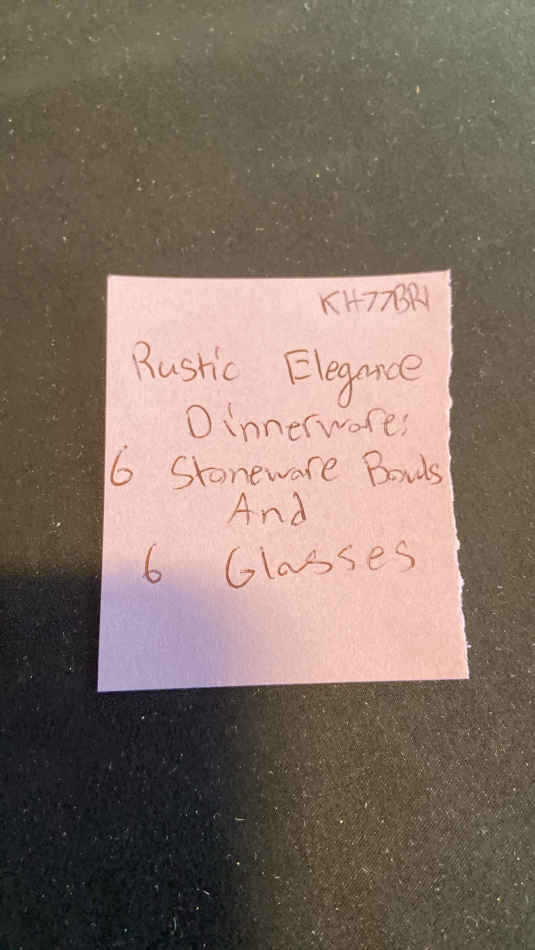 KH77BR1
Rustic Elegance
Dinnerware:
6 Stoneware Bowls
And
6 Glasses